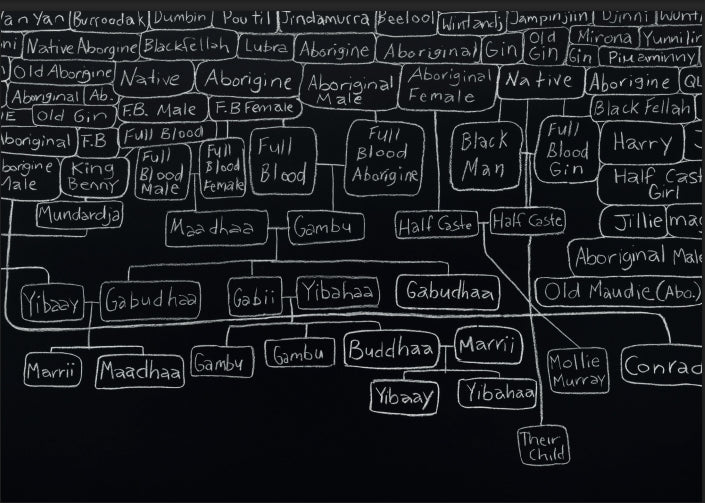 an Yan Burroodak Dumbin Poutil Jindamurra Beelool Wintlandj Jampinjiin Djinni Wunti
ni Native Aborgine Blackfellah Lubra Aborigine Aboriginal Gin Old Gin Mirona Yunnilir
Gin Piuaminny
Old Aborgine Native Aborigine Aboriginal Male Aboriginal Female Native Aborigine QL
Aboriginal Ab. F.B. Male F.B Female Black Fellah
IE Old Gin Full Blood
boriginal F.B Full Blood Male Full Blood Female Full Blood Full Blood Aborigine Black Man Full Blood Gin Harry J
borigine Male King Benny Half Cast Girl
Mundardja Maadhaa Gambu Half Caste Half Caste Jillie mac
Aboriginal Male
Yibaay Gabudhaa Gabii Yibahaa Gabudhaa Old Maudie (Abo.)
Marrii Maadhaa Gambu Gambu Buddhaa Marrii Mollie Murray Conrad
Yibaay Yibahaa
Their Child